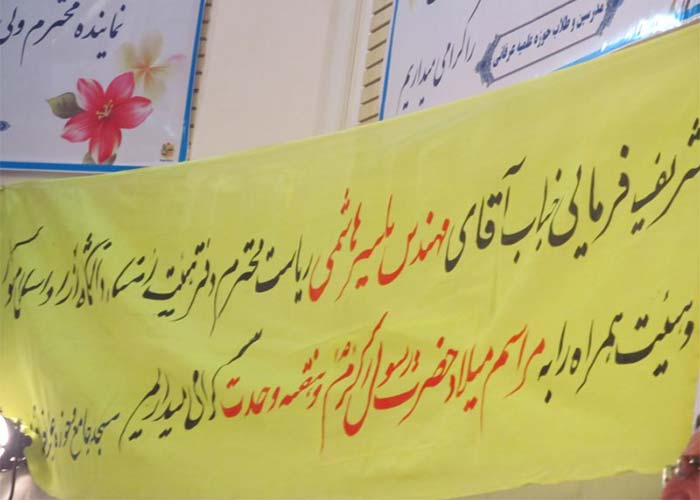 نماینده محترم ولی
مدرسین و طلاب حوزه علمیه عرفانی
را گرامی میداریم
شریف فرمایی جناب آقای مهندس یاسر هاشمی ریاست محترم دفتر هیئت رئیسه دانشگاه آزاد اسلامی
و هیئت همراه را به مراسم میلاد حضرت رسول اکرم و هفته وحدت گرامی میداریم
مسجد جامع و حوزه